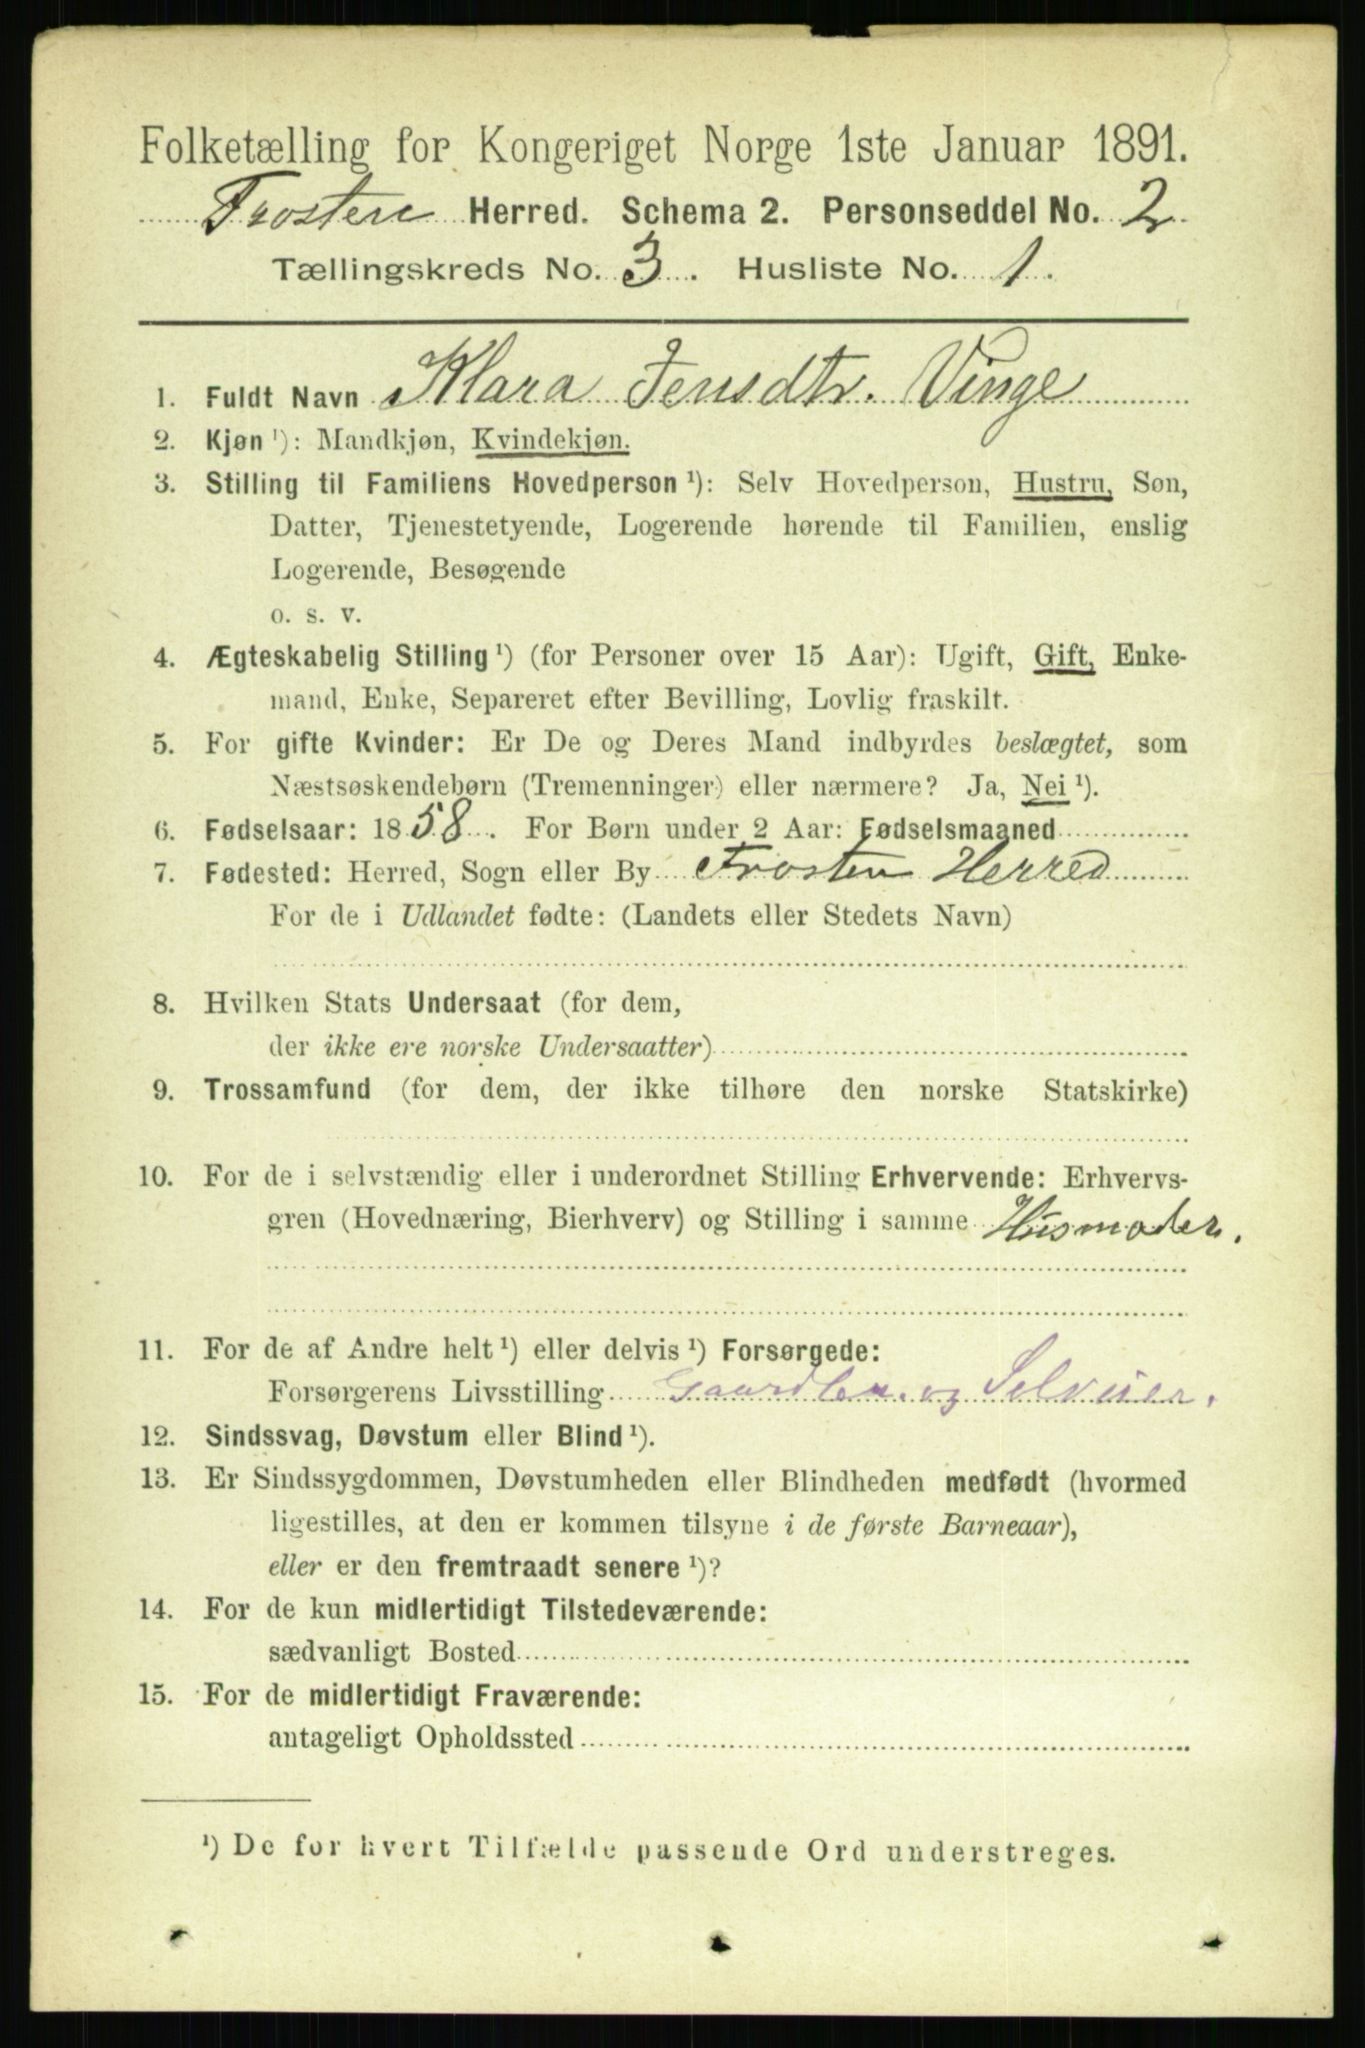 Folketælling for Kongeriget Norge 1ste Januar 1891.
Frosten Herred. Schema 2. Personseddel No. 2
Tællingskreds No. 3. Husliste No. 1.
1. Fuldt Navn Klara Jensdtr. Vinge
2. Kjøn ¹): Mandkjøn, Kvindekjøn.
3. Stilling til Familiens Hovedperson ¹): Selv Hovedperson, Hustru, Søn,
Datter, Tjenestetyende, Logerende hørende til Familien, enslig
Logerende, Besøgende
o. s. v.
4. Ægteskabelig Stilling ¹) (for Personer over 15 Aar): Ugift, Gift, Enke-
mand, Enke, Separeret efter Bevilling, Lovlig fraskilt.
5. For gifte Kvinder: Er De og Deres Mand indbyrdes beslægtet, som
Næstsøskendebørn (Tremenninger) eller nærmere? Ja, Nei ¹).
6. Fødselsaar: 1858. For Børn under 2 Aar: Fødselsmaaned
7. Fødested: Herred, Sogn eller By Frosten Herred
For de i Udlandet fødte: (Landets eller Stedets Navn)
8. Hvilken Stats Undersaat (for dem,
der ikke ere norske Undersaatter)
9. Trossamfund (for dem, der ikke tilhøre den norske Statskirke)
10. For de i selvstændig eller i underordnet Stilling Erhvervende: Erhvervs-
gren (Hovednæring, Bierhverv) og Stilling i samme Husmoder.
11. For de af Andre helt ¹) eller delvis ¹) Forsørgede:
Forsørgerens Livsstilling Gaardbr. og Selveier.
12. Sindssvag, Døvstum eller Blind ¹).
13. Er Sindssygdommen, Døvstumheden eller Blindheden medfødt (hvormed
ligestilles, at den er kommen tilsyne i de første Barneaar),
eller er den fremtraadt senere ¹)?
14. For de kun midlertidigt Tilstedeværende:
sædvanligt Bosted
15. For de midlertidigt Fraværende:
antageligt Opholdssted
¹) De for hvert Tilfælde passende Ord understreges.